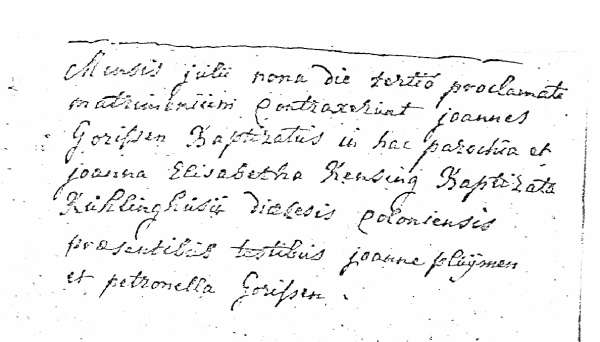 Mensis julii nona die tertio proclamate
matrimonium Contraxerunt joannes
Gorissen Baptizatus in hac parochia et
joanna Elisabetha Kensing Baptizata
Kuhlinghusii diœlesis Coloniensis
præsentibus testibus joanne pluÿmen
et petronella Gorissen.